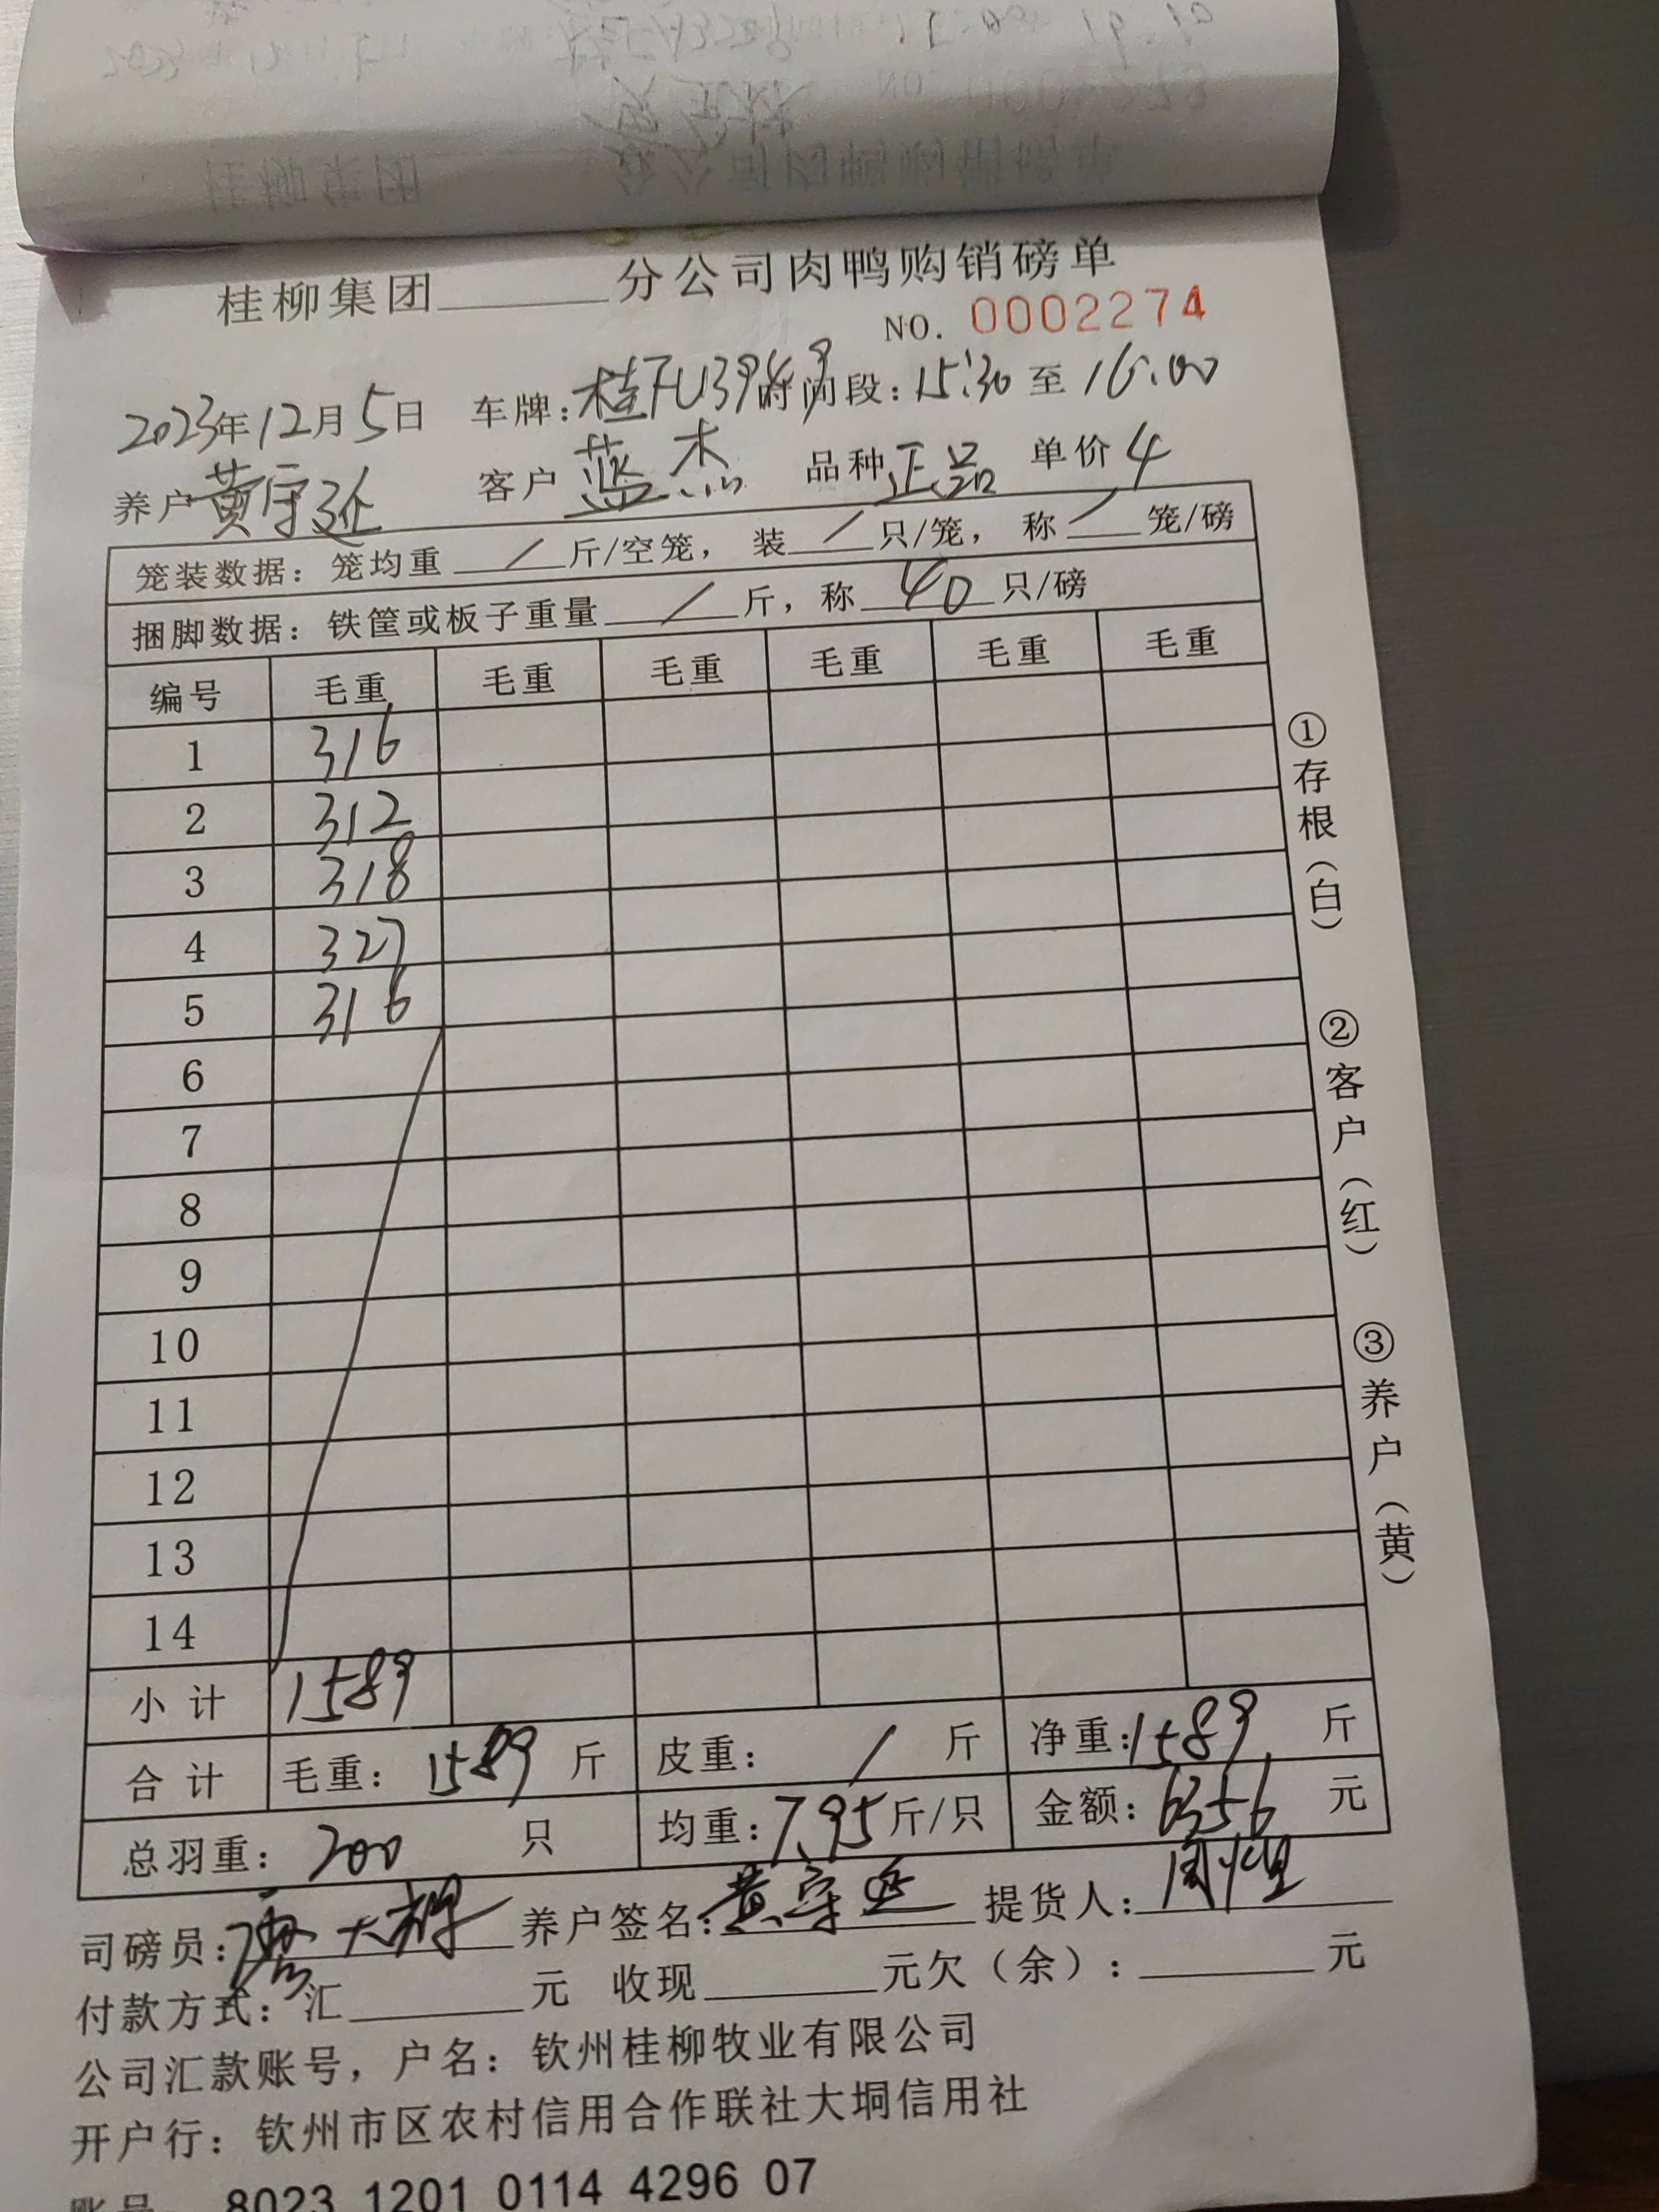 桂柳集团______分公司肉鸭购销磅单
NO. 0002274
2023年12月5日 车牌:桂FU3949 时间段:15:30 至 16:00
养户 黄守延 客户 蓝杰 品种 正品 单价 4
笼装数据: 笼均重 / 斤/空笼, 装 / 只/笼, 称 / 笼/磅
捆脚数据: 铁筐或板子重量 / 斤, 称 40 只/磅
编号 毛重 毛重 毛重 毛重 毛重 毛重
1 316
2 312
3 318
4 327
5 316
6
7
8
9
10
11
12
13
14
小计 1589
合计 毛重: 1589 斤 皮重: / 斤 净重: 1589 斤
总羽重: 200 只 均重: 7.95 斤/只 金额: 6356 元
司磅员: 养户签名: 黄守延 提货人:
付款方式: 汇______元 收现______元欠(余):______元
公司汇款账号, 户名: 钦州桂柳牧业有限公司
开户行: 钦州市区农村信用合作联社大垌信用社
账号: 8023 1201 0114 4296 07
①存根(白) ②客户(红) ③养户(黄)